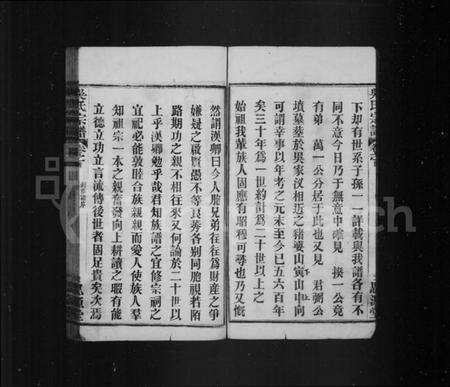 下却有世系子孫一一詳載與我譜各有不
同不意今日乃于無意中獲見 接一公竟
有弟 萬一公分居于此也又見 君剡公
墳墓葬於吳家汉相近之豬婆山寅山申向
可謂幸事以年考之元末至今已五六百年
矣三十年為一世約計為二十世以上之
始祖我董族人固應有昭穆可尋也乃又慨
然謂漢卿曰今人胞兄弟往往為財產之爭
嫌疑之啟賢愚不等良莠各別同胞視若陌
路期功之親不相往來又何論於二十世以
上乎漢卿勉乎哉君知族譜之宜修宗祠之
宜祀必能敦睦合族親親而愛人使族人羣
知祖宗一本之親奮發向上耕讀之暇有能
立德立功立言流傳後世者固足貴矣次焉
吳氏宗譜
卷之